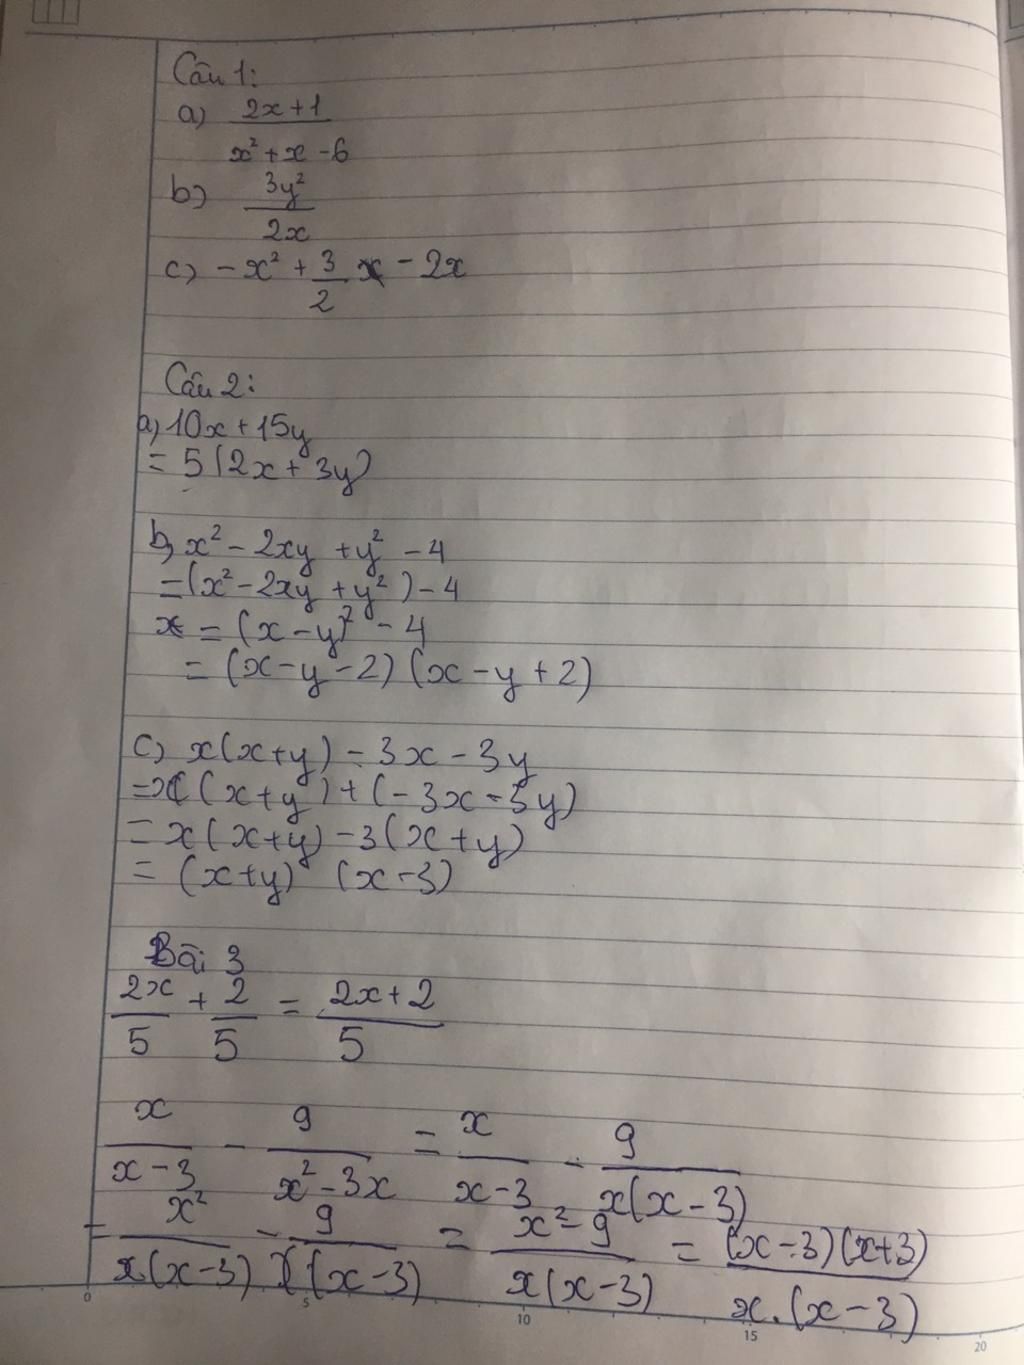 Câu 1:
a) 2x+1 / x²+x-6
b) 3y² / 2x
c) -x² + 3/2 x - 2x
Câu 2:
a) 10x+15y
= 5(2x+3y)
b) x² - 2xy + y² - 4
= (x² - 2xy + y²) - 4
= (x-y)² - 4
= (x-y-2) (x-y+2)
c) x(x+y) - 3x - 3y
= x(x+y) + (-3x-3y)
= x(x+y) - 3(x+y)
= (x+y) (x-3)
Bài 3
2x/5 + 2/5 = 2x+2 / 5
x / x-3 - 9 / x²-3x = x / x-3 - 9 / x(x-3)
= x² / x(x-3) - 9 / x(x-3) = x²-9 / x(x-3) = (x-3)(x+3) / x.(x-3)
0 5 10 15 20